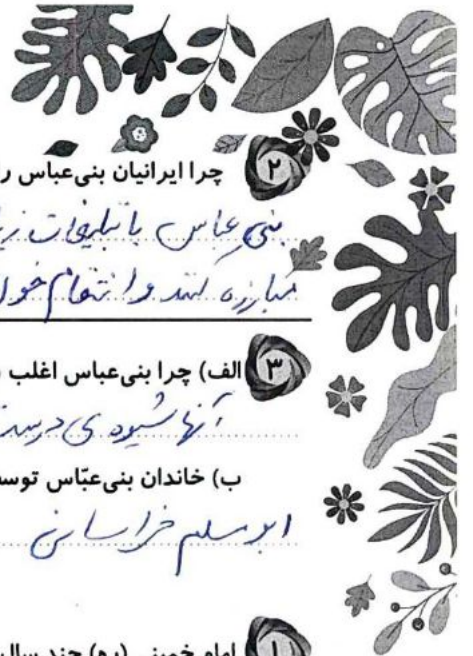 ۲ چرا ایرانیان بنی‌عباس را
بنی عباس با تبلیغات
مبارزه کنند و انتقام خون
۳ الف) چرا بنی‌عباس اغلب
آنها شیوه ی درست
ب) خاندان بنی‌عبّاس توسط
ابو مسلم خراسانی
۱ امام خمینی (ره) چند سال